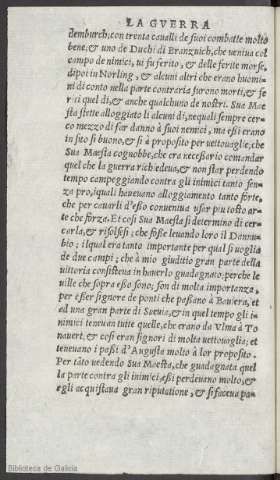 LA GVERRA
demburch: con trenta caualli de suoi combatte molto
bene: & uno de Duchi di Branzuich, che ueniua col
campo de nimici, ui fu ferito, & delle ferite morse,
dipoi in Norling, & alcuni altri che erano huomi
ni di conto nella parte contraria furono morti, & fe
riti quel di, & anche qualchuno de nostri. Sua Mae
sta stette alloggiato li alcuni dì, nequali sempre cer-
co mezzo di far danno à suoi nemici, ma essi erano
in sito si buono, & sì à proposito per uettouaglie, che
Sua Maesta cognobbe, che era necessario comandar
quel che la guerra richiedeua, & non star perdendo
tempo campeggiando contra gli inimici tanto sen-
za pro, iquali haueuano alloggiamento tanto forte,
che per cauarli d'esso conueniua usar piu tosto ar-
te che forza. Et così Sua Maesta si determino di cer-
carla, & risolsesi; che fosse leuando loro il Dannu-
bio; ilqual era tanto importante per qual si uoglia
de due campi; che à mio giuditio gran parte della
uittoria consisteua in hauerlo guadagnato: perche le
uille che sopra esso sono; son di molta importanza,
per esser signore de ponti che passano à Bauiera, et
ad una gran parte di Sueuia, & in quel tempo gli i-
nimici teneuan tutte quelle, che erano da Vlma à To
nauert, & così eran signori di molta uettouaglia; et
teneuano i passi d'Augusta molto à lor proposito.
Per tãto uedendo Sua Maesta, che guadagnata quel
la parte contra gli inimici, essi perdeuano molto, &
egli acquistaua gran riputatione, & si faceua pa-
Biblioteca de Galicia